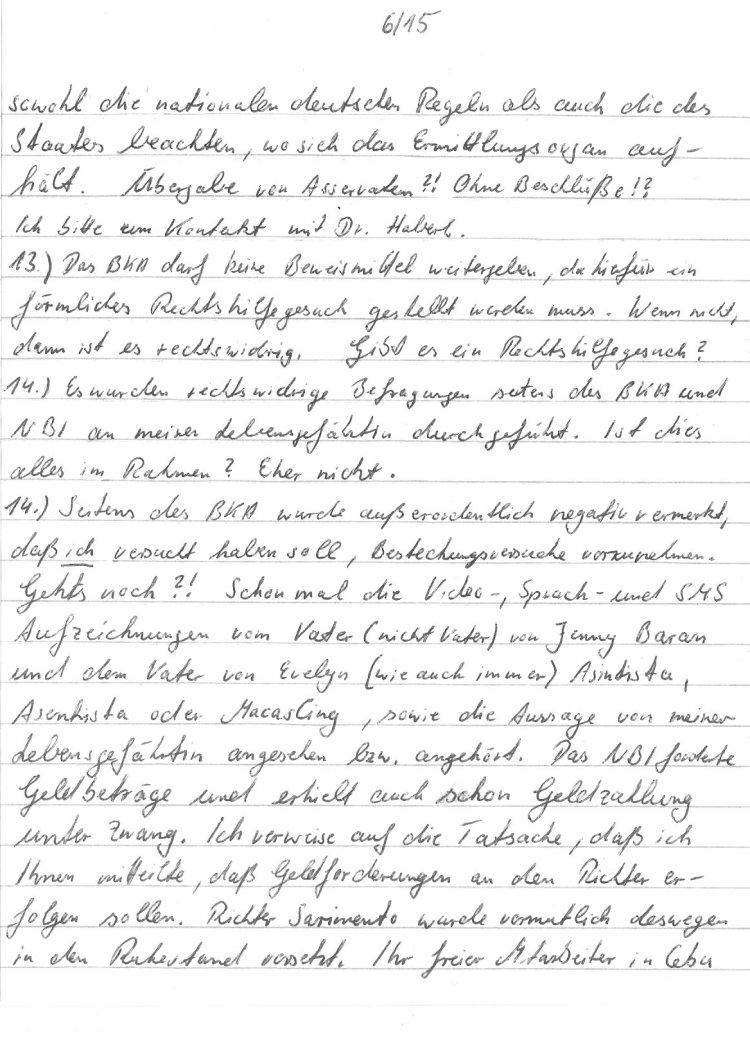 6/15
sowohl die nationalen deutschen Regeln als auch die des
Staates beachten, wo sich das Ermittlungsorgan auf-
hält. Übergabe von Asservaten?! Ohne Beschlüße!?
Ich bitte um Kontakt mit Dr. Haberl.
13.) Das BKA darf keine Beweismittel weitergeben, da hiefür ein
förmliches Rechtshilfegesuch gestellt werden muss. Wenn nicht,
dann ist es rechtswidrig. Gibt es ein Rechtshilfegesuch?
14.) Es wurden rechtswidrige Befragungen seitens des BKA und
NBI an meiner Lebensgefährtin durchgeführt. Ist dies
alles im Rahmen? Eher nicht.
14.) Seitens des BKA wurde außerordentlich negativ vermerkt,
daß ich versucht haben soll, Bestechungsversuche vorzunehmen.
Gehts noch?! Schon mal die Video-, Sprach- und SMS
Aufzeichnungen vom Vater (nicht Vater) von Jenny Baran
und dem Vater von Evelyn (wie auch immer) Asintista,
Asentista oder Macasling, sowie die Aussage von meiner
Lebensgefährtin angesehen bzw. angehört. Das NBI forderte
Geldbeträge und erhielt auch schon Geldzahlung
unter Zwang. Ich verweise auf die Tatsache, daß ich
Ihnen mitteilte, daß Geldforderungen an den Richter er-
folgen sollen. Richter Sarimento wurde vermutlich deswegen
in den Ruhestand versetzt. Ihr freier Mitarbeiter in Cebu